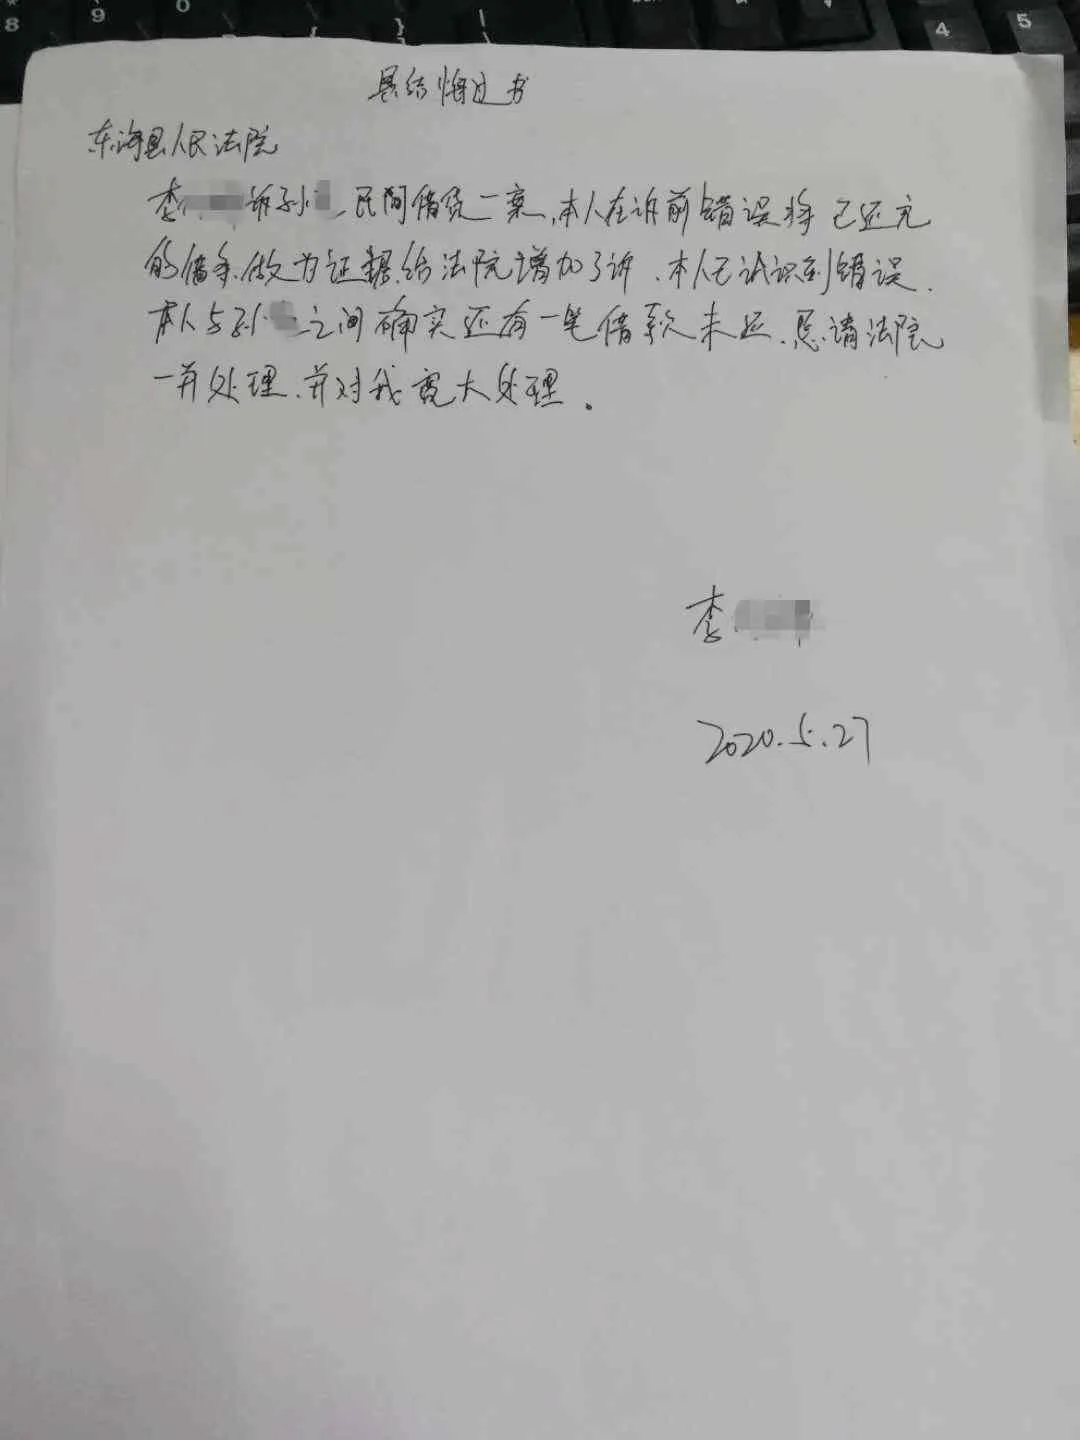 8 9 0 { } | 4 5
具结悔过书
东海县人民法院
李 诉孙 民间借贷一案,本人在诉前错误将已还完
的借条做为证据给法院增加了诉、本人已认识到错误.
本人与孙 之间确实还有一笔借款未还、恳请法院
一并处理、并对我宽大处理。
李
2020.5.27